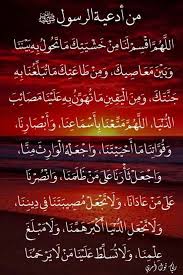 من أدعية الرسول ﷺ
اللَّهُمَّ اقْسِمْ لَنَا مِنْ خَشْيَتِكَ مَا تَحُولُ بِهِ بَيْنَنَا
وَبَيْنَ مَعَاصِيكَ، وَمِنْ طَاعَتِكَ مَا تُبَلِّغُنَا بِهِ
جَنَّتَكَ، وَمِنَ الْيَقِينِ مَا تُهَوِّنُ بِهِ عَلَيْنَا مَصَائِبَ
الدُّنْيَا، اللَّهُمَّ مَتِّعْنَا بِأَسْمَاعِنَا، وَأَبْصَارِنَا،
وَقُوَّاتِنَا مَا أَحْيَيْتَنَا، وَاجْعَلْهُ الْوَارِثَ مِنَّا،
وَاجْعَلْ ثَأْرَنَا عَلَى مَنْ ظَلَمَنَا، وَانْصُرْنَا
عَلَى مَنْ عَادَانَا، وَلَا تَجْعَلْ مُصِيبَتَنَا فِي دِينِنَا،
وَلَا تَجْعَلِ الدُّنْيَا أَكْبَرَ هَمِّنَا، وَلَا مَبْلَغَ
عِلْمِنَا، وَلَا تُسَلِّطْ عَلَيْنَا مَنْ لَا يَرْحَمُنَا